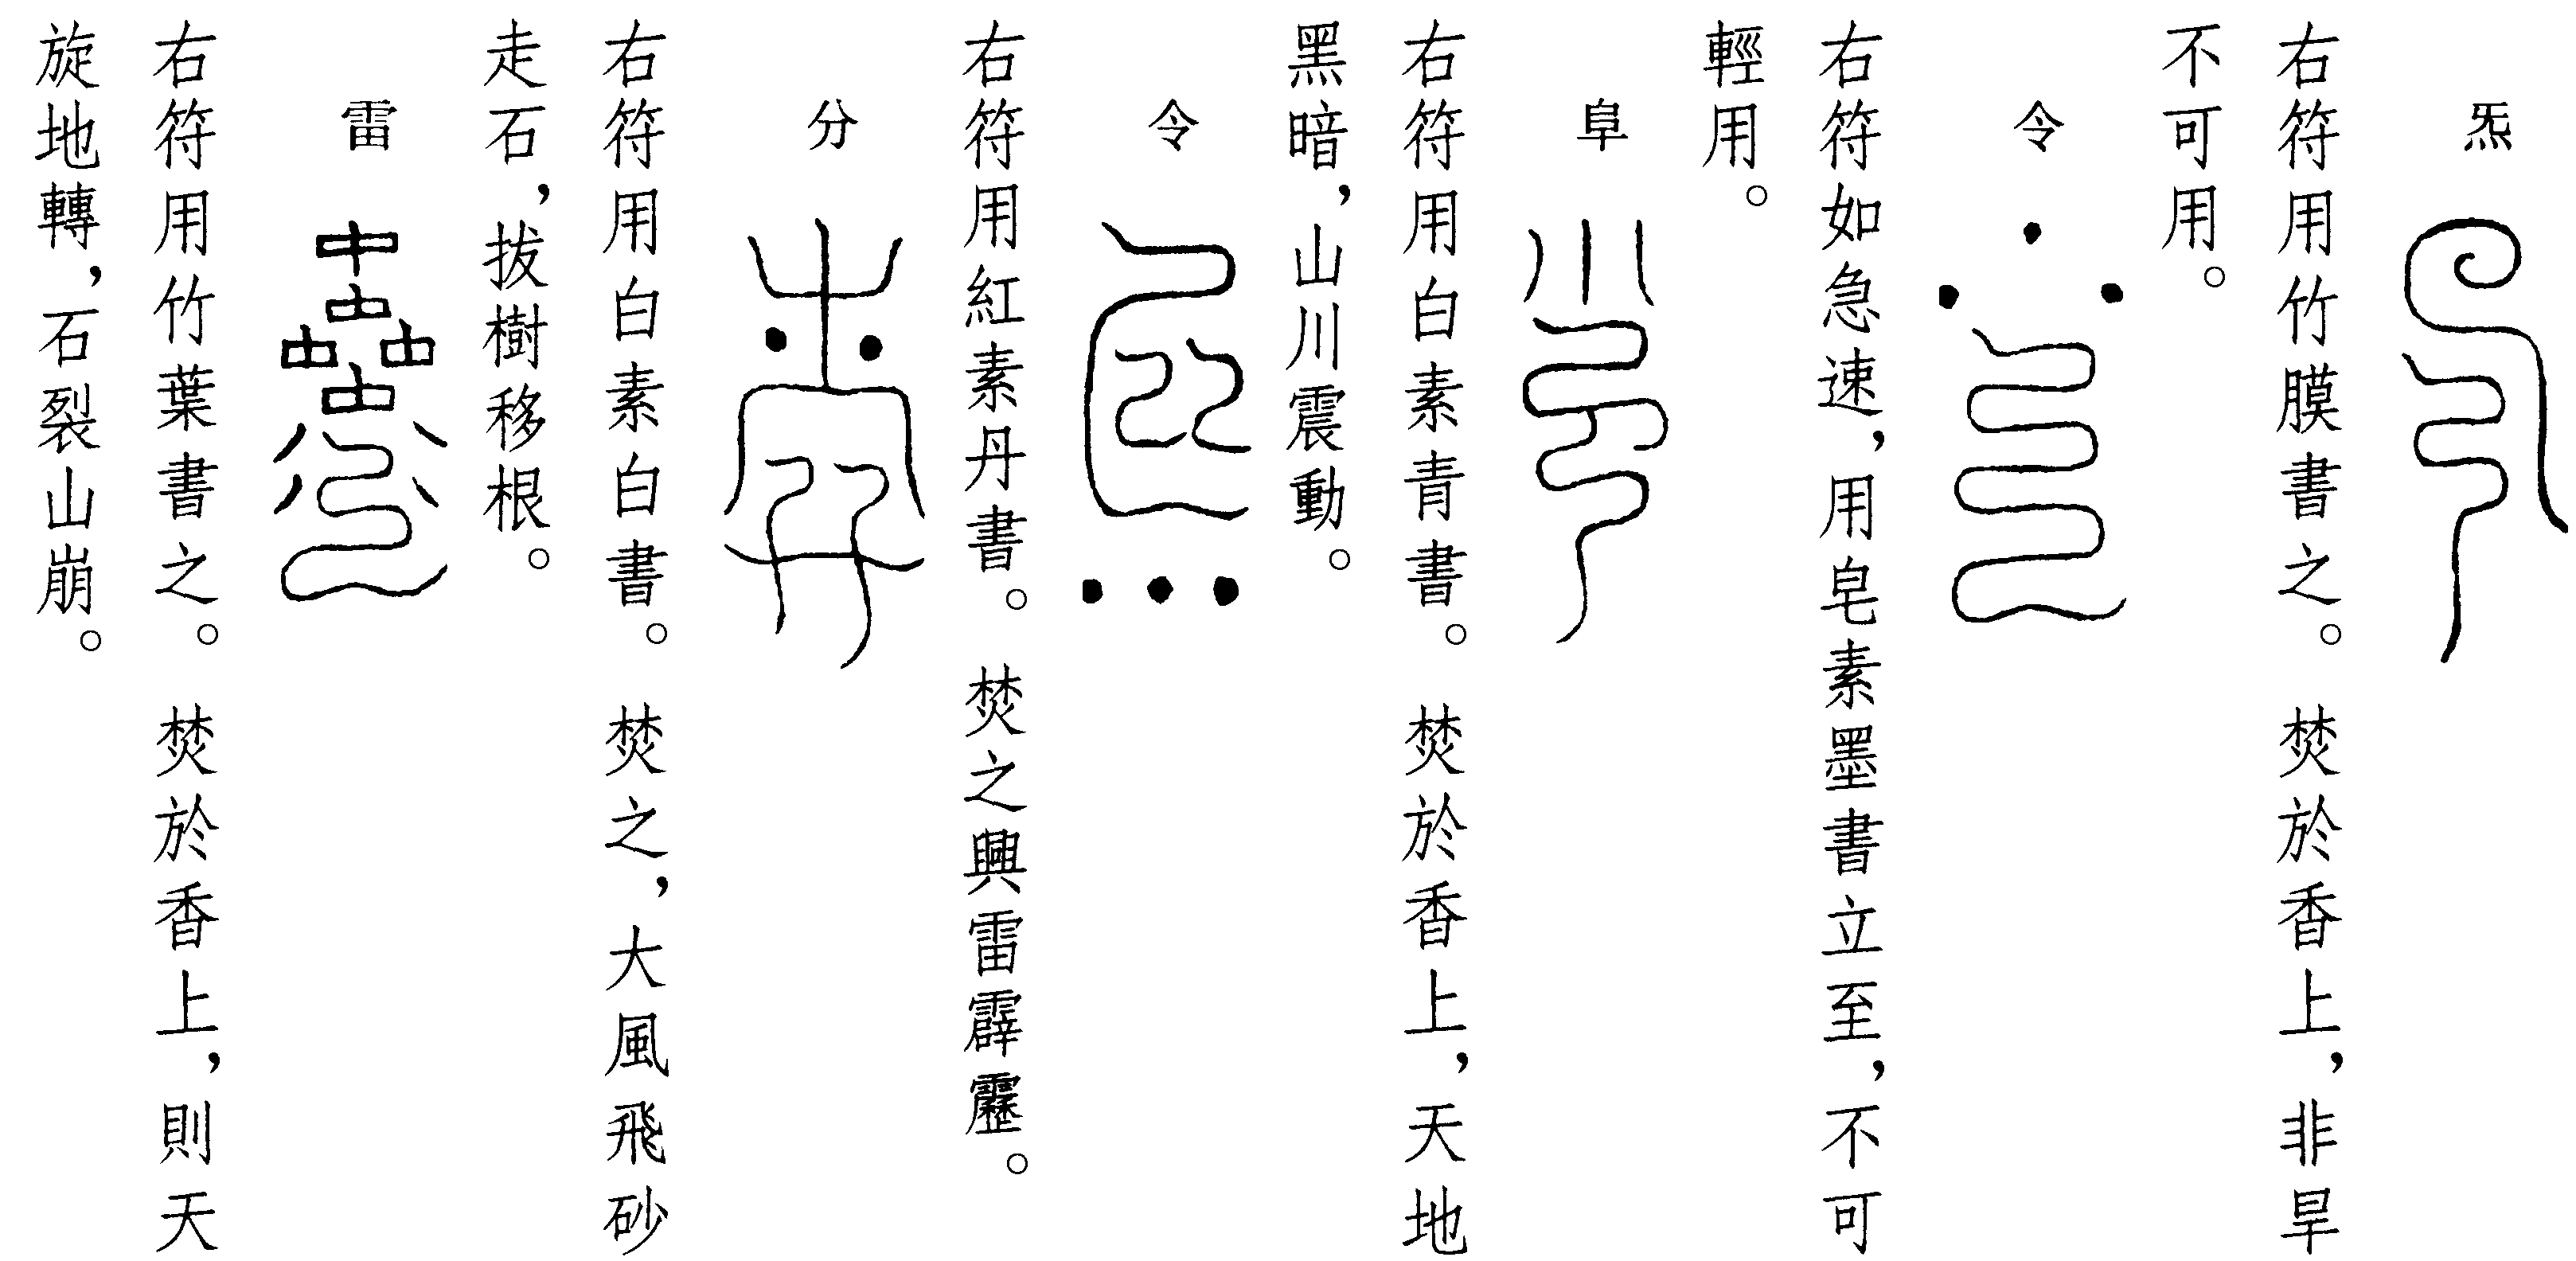 炁
右符用竹膜書之。焚於香上，非旱
不可用。
令
右符如急速，用皂素墨書立至，不可
輕用。
阜
右符用白素青書。焚於香上，天地
黑暗，山川震動。
令
右符用紅素丹書。焚之興雷霹靂。
分
右符用白素白書。焚之，大風飛砂
走石，拔樹移根。
雷
右符用竹葉書之。焚於香上，則天
旋地轉，石裂山崩。